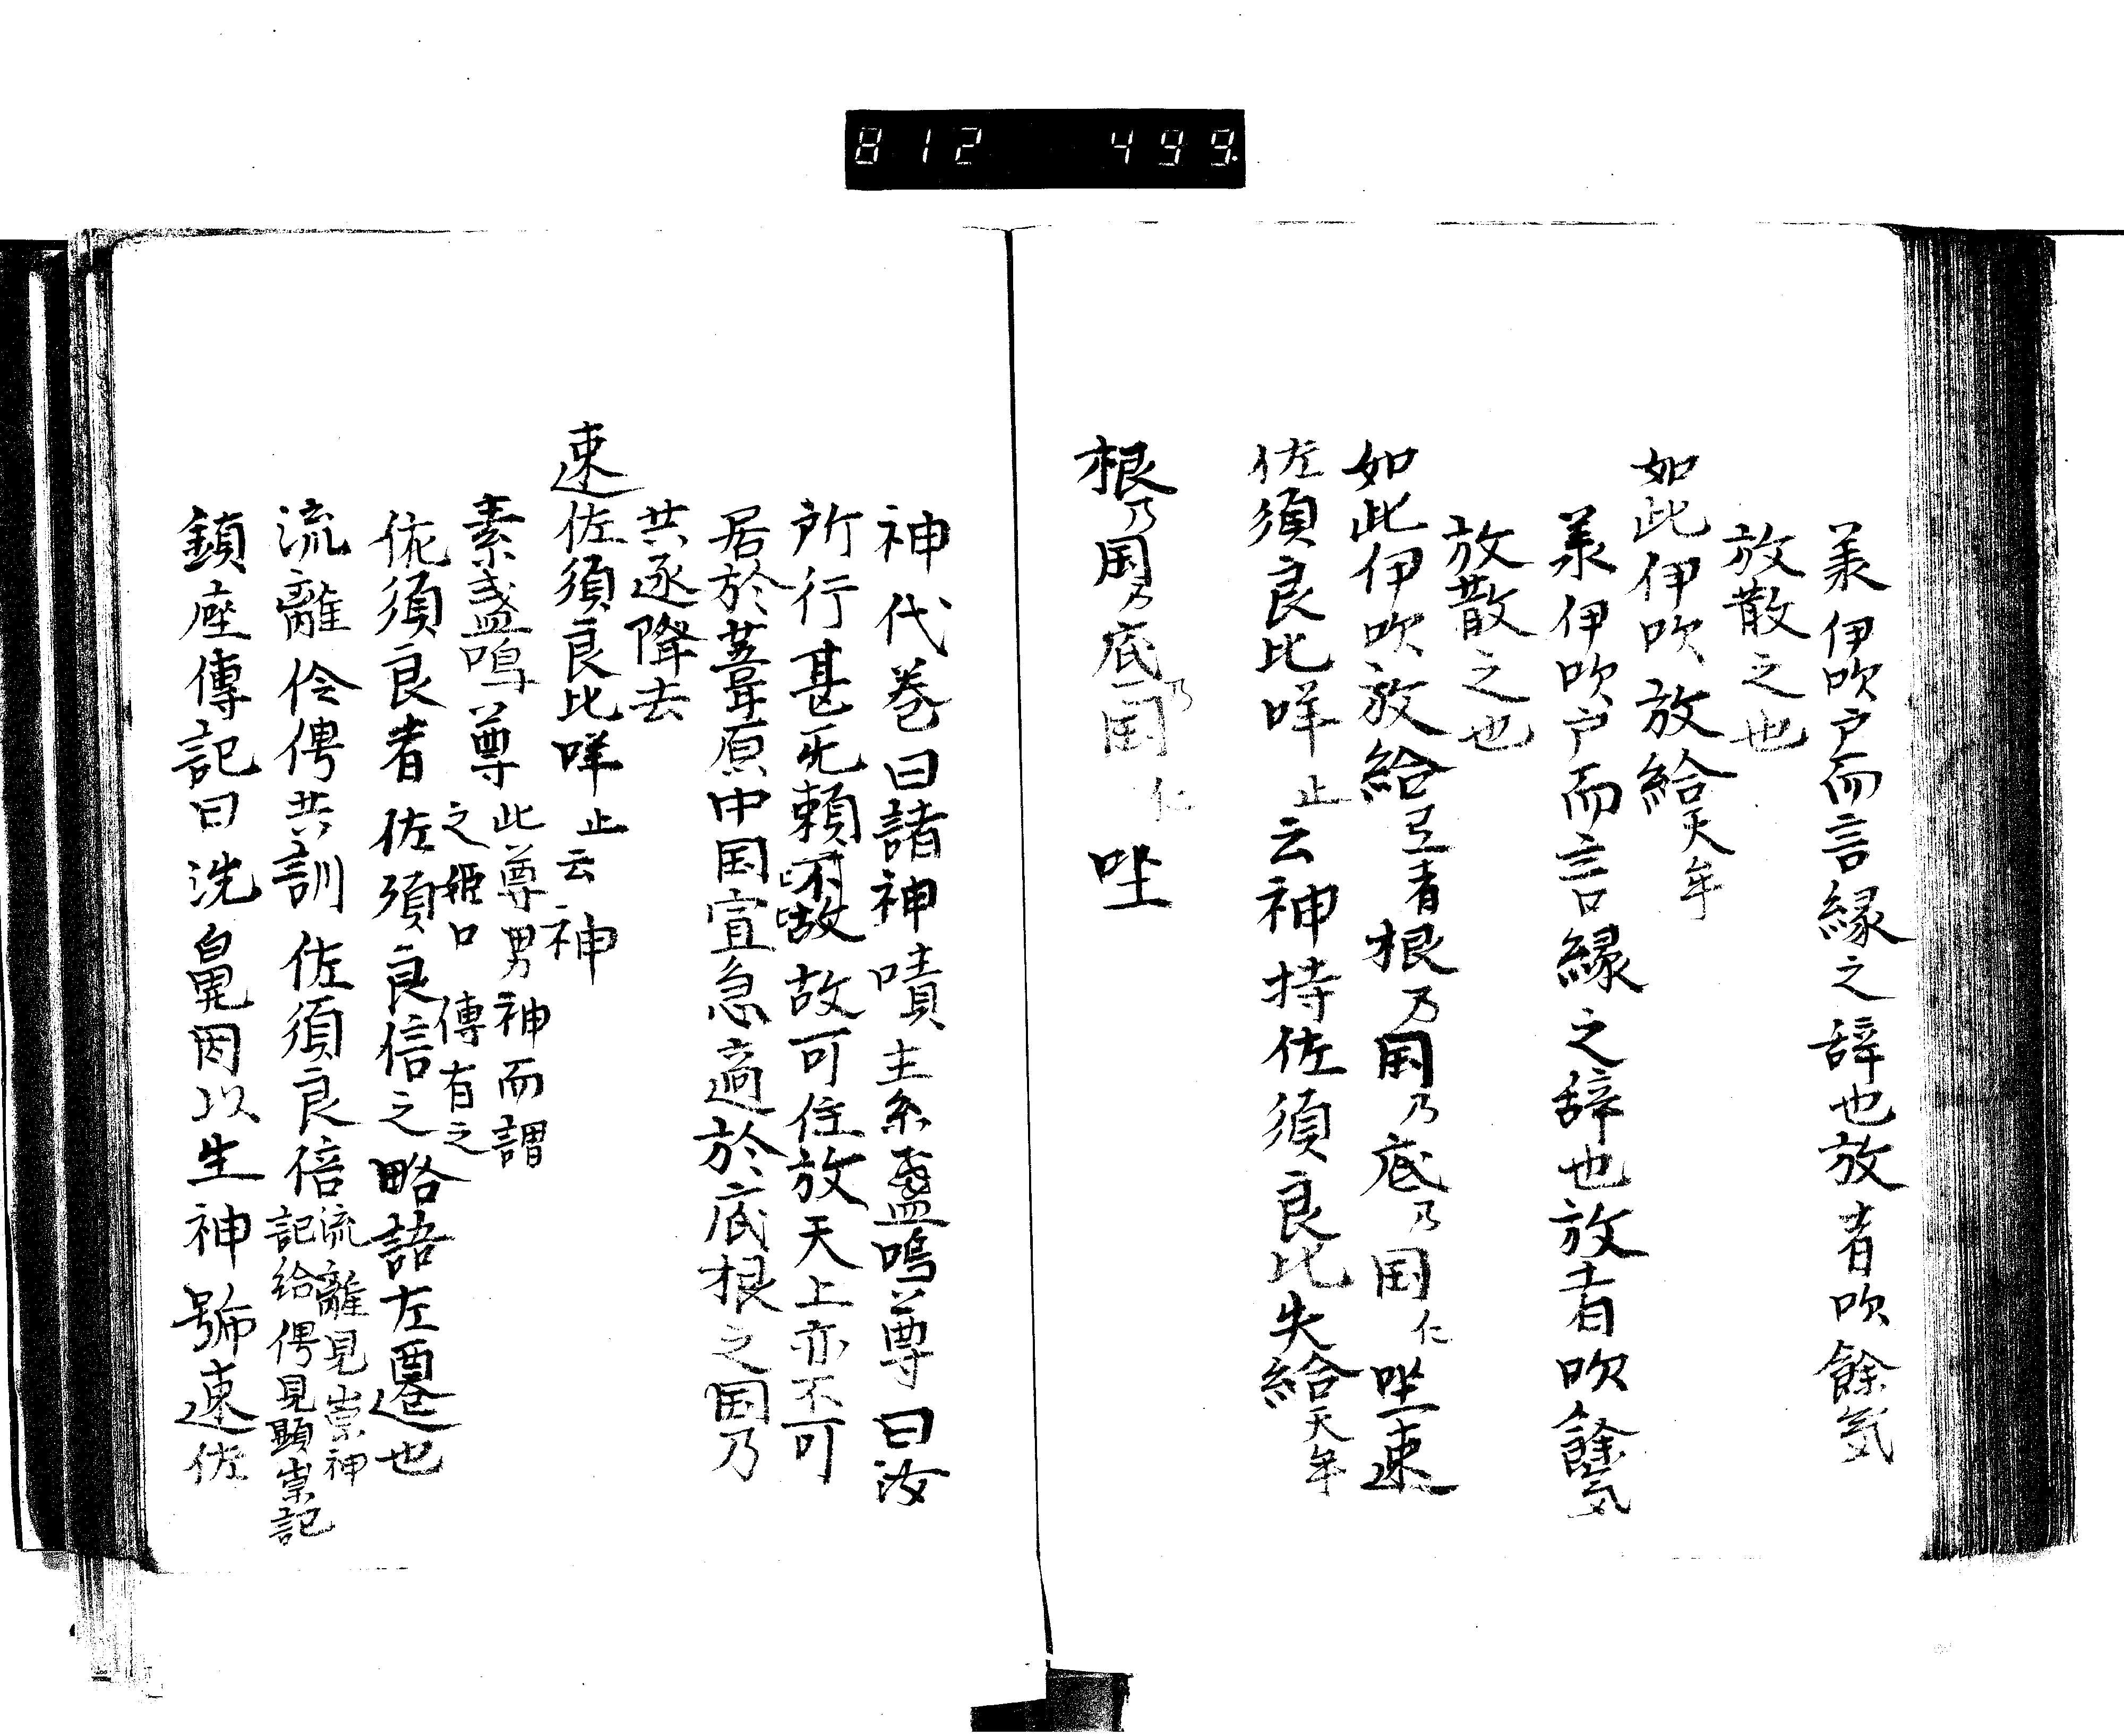 812 499
美伊吹戸而言縁之辞也放者吹餘気
放散之也
如此伊吹放給天牟
美伊吹戸而言縁之辞也放者吹餘気
放散之也
如此伊吹放給弖者根乃国乃底乃国仁坐速
佐須良比咩止云神持佐須良比失給天牟
根乃国乃底乃国仁坐
神代巻曰諸神嘖素盞嗚尊曰汝
所行甚無頼不故故可住放天上亦不可
居於葦原中国宜急適於底根之国乃
共逐降去
速佐須良比咩止云神
素盞嗚尊此尊男神而謂
之姫口傳有之
佐須良者佐須良信之略語左遷也
流離伶俜共訓佐須良倍流離見崇神
記給俜見顕宗記
鎮座傳記曰洗鼻因以生神號速佐